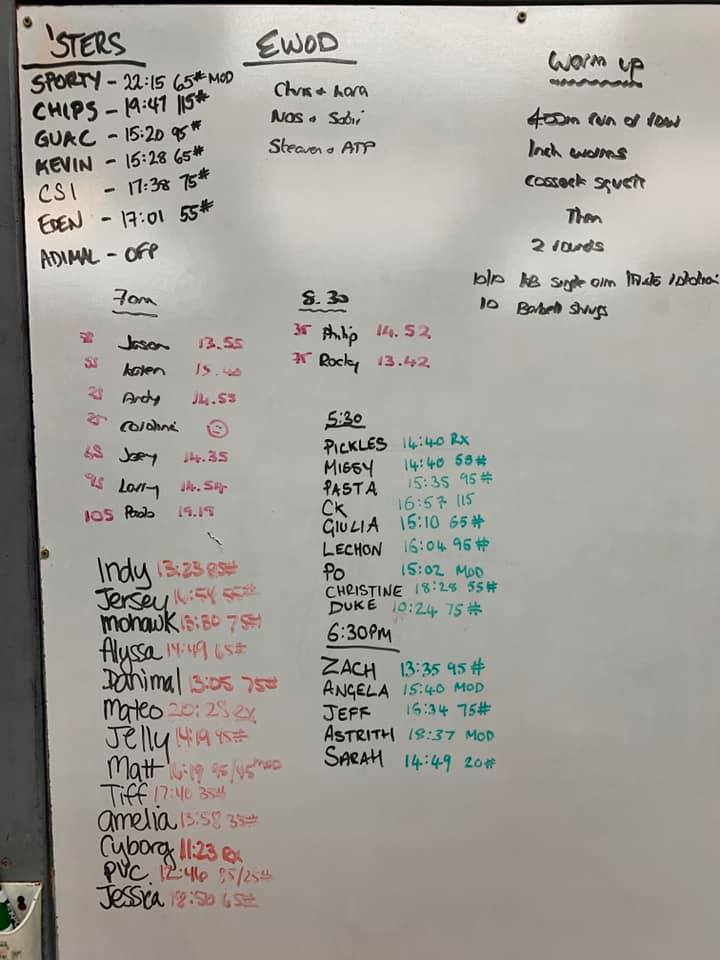 'STERS
SPORTY - 22:15 65# MOD
CHIPS - 19:47 115#
GUAC - 15:20 95#
KEVIN - 15:28 65#
CSI - 17:38 75#
EDEN - 17:01 55#
ADIMAL - OFP
EWOD
Chris + Lora
Nas + Sabri
Steaven + ATP
Warm up
400m run or row
Inch worms
Cossack squat
Then
2 rounds
10/10 KB Single arm
10 Barbell
7am
Jason 13.55
Karen
Andy 14.53
65 Joey 14.35
95 Larry 14.54
105 Paolo 19.19
8.30
35 Philip 14.52
75 Rocky 13.42
5:30
PICKLES 14:40 RX
MISSY 14:40 55#
PASTA 15:35 95#
CK 16:57 115
GIULIA 15:10 65#
LECHON 16:04 95#
PO 15:02 MOD
CHRISTINE 18:28 55#
DUKE 10:24 75#
6:30PM
ZACH 13:35 95#
ANGELA 15:40 MOD
JEFF 75#
ASTRITH 18:37 MOD
SARAH 14:49 20#
Indy 13:23
Jersey 55#
mohawk 75#
Alyssa 14:49 65#
Danimal 13:05 75#
mateo 20:28 rx
Jelly 14:19
Matt 16:19 MOD
Tiff 17:40 35#
amelia 13:58 35#
Cyborg 11:23 RX
PVC 12:46
Jessica 18:50 65#